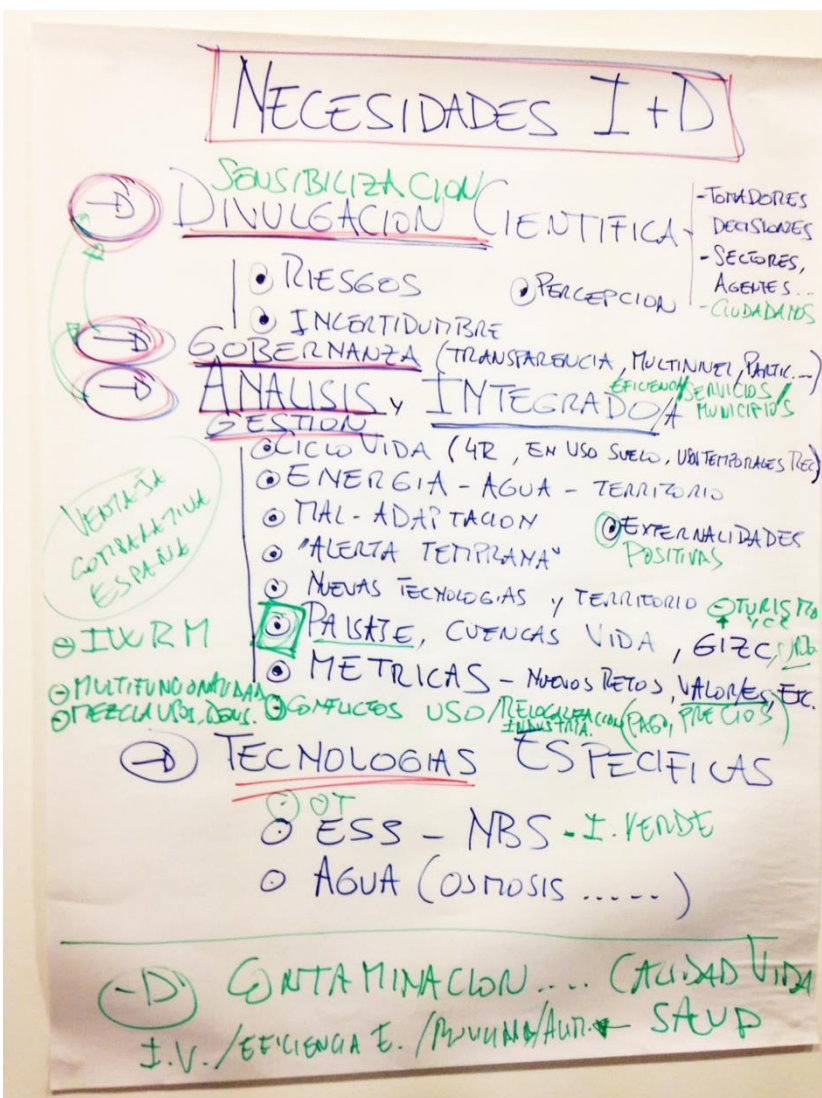 NECESIDADES I+D
SENSIBILIZACION
DIVULGACION CIENTIFICA
- TOMADORES
DECISIONES
- SECTORES,
AGENTES...
- CIUDADANOS
RIESGOS
PERCEPCION
INCERTIDUMBRE
GOBERNANZA (TRANSPARENCIA, MULTINIVEL, PARTIC...)
EFICIENCIA/SERVICIOS/
MUNICIPIOS
ANALISIS y INTEGRADO/A
GESTION
CICLO VIDA (4R, EN USO SUELO, TEMPORALES REC)
ENERGIA - AGUA - TERRITORIO
MAL-ADAPTACION
EXTERNALIDADES
POSITIVAS
"ALERTA TEMPRANA"
NUEVAS TECNOLOGIAS y TERRITORIO
TURISMO
y CC
PAISAJE, CUENCAS VIDA, GIZC,
METRICAS - NUEVOS RETOS, VALOR/ES, ETC.
CONFLICTOS USO/RELOCALIZACION
INDUSTRIA.
(PAGO, PRECIOS)
VENTAJA
COMPARATIVA
ESPAÑA
IWRM
MULTIFUNCIONALIDAD
MEZCLA USOS, DENS.
TECNOLOGIAS ESPECIFICAS
OT
ESS - NBS - I. VERDE
AGUA (OSMOSIS .....)
CONTAMINACION.... CALIDAD VIDA
I.V./EFICIENCIA E./
SALUD